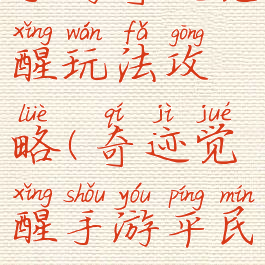 xǐng wán fǎ gōng
醒玩法攻
lüè qí jì jué
略(奇迹觉
xǐng shǒu yóu píng mín
醒手游平民